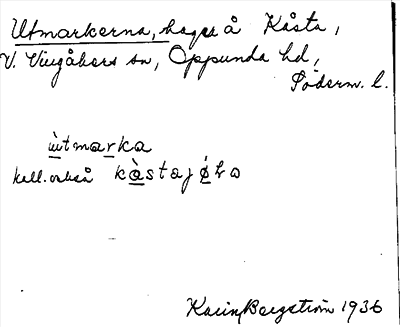 Utmarkerna, hage å Kåsta,
V. Vingåkers sn, Oppunda hd,
Söderm. l.
ùtmarka
kall. också kàstajǿla
Karin Bergström 1936